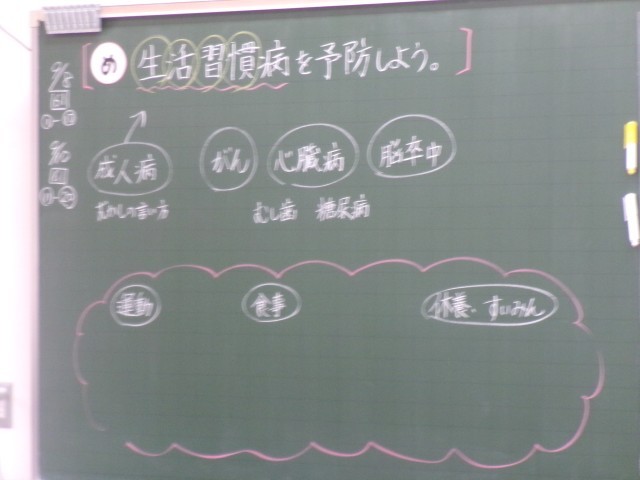 め 生活習慣病を予防しよう。
成人病 がん 心臓病 脳卒中
むかしの言い方 むし歯 糖尿病
運動 食事 休養・すいみん